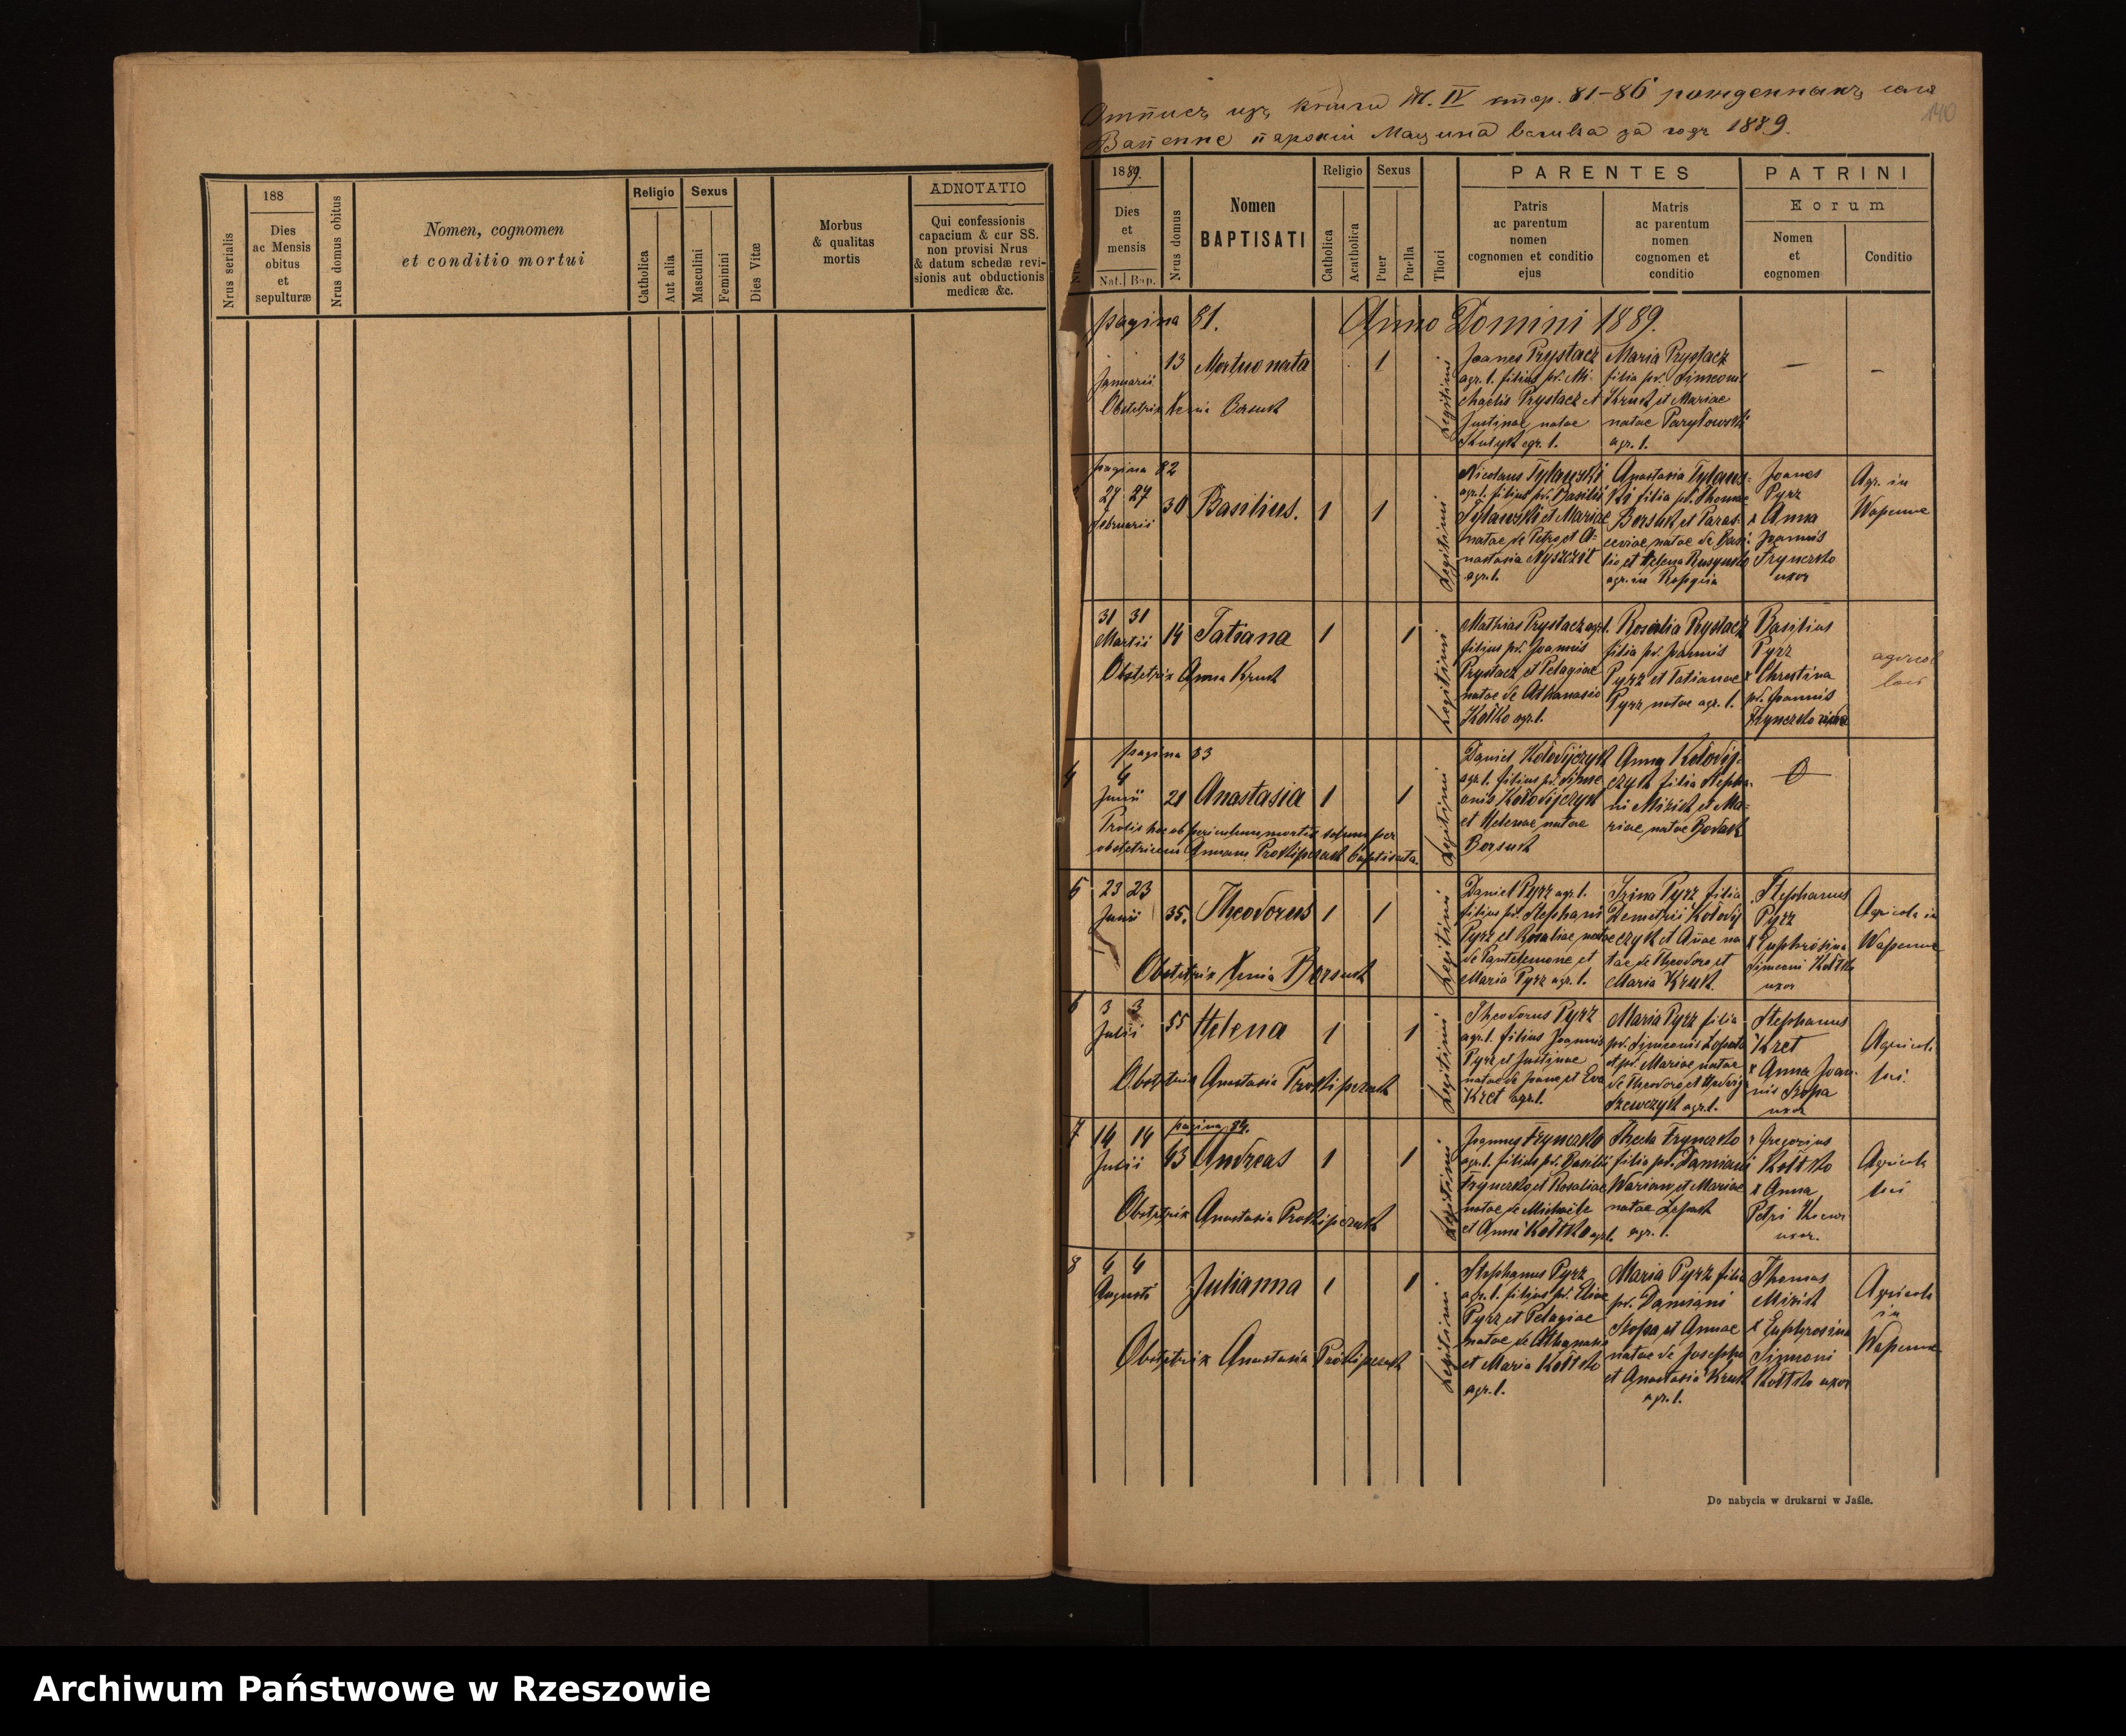 188
Nrus serialis
Dies
ac Mensis
obitus
et
sepulturæ
Nrus domus obitus
Nomen, cognomen
et conditio mortui
Religio
Catholica
Aut alia
Sexus
Masculini
Feminini
Dies Vitæ
Morbus
& qualitas
mortis
ADNOTATIO
Qui confessionis
capacium & cur SS.
non provisi Nrus
& datum schedæ revi-
sionis aut obductionis
medicæ &c.
140
IV 81-86
1889.
1889.
Dies
et
mensis
Nat. Bap.
Nrus domus
Nomen
BAPTISATI
Religio
Catholica
Acatholica
Sexus
Puer
Puella
Thori
PARENTES
Patris
ac parentum
nomen
cognomen et conditio
ejus
Matris
ac parentum
nomen
cognomen et
conditio
PATRINI
Eorum
Nomen
et
cognomen
Conditio
pagina 81. Anno Domini 1889.
Januarii
13 Mortuo nata 1
Obstetrix Xenia Borsuk
Legitimi
Joanes Prystacz
agr. l. filius pd. Mi-
chaelis Prystacz et
Justinae natae
agr. l.
Maria Prystacz
filia pd. Simeoni
Kruk et Mariae
natae
agr. l.
pagina 82
27 27
Februarii
30 Basilius. 1 1
Legitimi
Nicolaus Tylawski
agr. l. filius pd. Basilii
Tylawski et Mariae
natae de Petro et A-
nastasia
agr. l.
Anastasia Tylaws-
ki filia pd. Thomae
Borsuk et Paras-
ceviae natae de Basi-
lio et Helena
agr. in Ropica
Joanes
Pyrz
x Anna
Joannis
Fryncko
uxor
Agr. in
Wapienne
31 31
Martii
14 Tatiana 1 1
Obstetrix Anna Kruk
Legitimi
Mathias Prystacz agr. l.
filius pd. Joannis
Prystacz et Pelagiae
natae de Athanasio
Kottko agr. l.
Rosalia Prystacz
filia pd. Joannis
Pyrz et Tatianae
Pyrz natae agr. l.
Basilius
Pyrz
x Christina
pd. Joannis
agricol
loci
pagina 83
4
4
Junii
21 Anastasia 1 1
Proles haec ob periculum mortis solum per
obstetricem Annam Prokipczuk baptisata.
Legitimi
Daniel Kołodijczyk
agr. l. filius pd. Sime
onis Kołodijczyk
et Helenae natae
Borsuk
Anna Kołodij-
czyk filia Stepha-
ni Mizik et Ma-
riae natae Bodak
5 23 23
Junii
35. Theodorus 1 1
Obstetrix Xenia Borsuk
Legitimi
Daniel Pyrz agr. l.
filius pd. Stephani
Pyrz et Rosaliae natae
de Pantelemone et
Maria Pyrz agr. l.
Irina Pyrz filia
Demetrii Kołodij
czyk et Annae na
tae de Theodoro et
Maria Kruk.
Stephanus
Pyrz
x Euphrosina
Simeoni Kottko
uxor
Agricola in
Wapienne
6 3 3
Julii
55 Helena 1 1
Obstetrix Anastasia Prokipczuk
Legitimi
Theodorus Pyrz
agr. l. filius Joannis
Pyrz et Justinae
natae de Joane et Eva
Kret agr. l.
Maria Pyrz filia
pd. Simeonis
et pd. Mariae natae
de Theodoro et
Szewczyk agr. l.
Stephanus
Kret
x Anna Joan-
nis Stopa
uxor
Agricola
loci.
pagina 84.
7 14 14
Julii
43 Andreas 1 1
Obstetrix Anastasia Prokipczuk
Legitimi
Joannes Fryncko
agr. l. filius pd. Basilii
Fryncko et Rosaliae
natae de Michaele
et Anna Kottko agr. l.
Thecla Fryncko
filia pd. Damiani
et Mariae
natae
agr. l.
Gregorius
Kottko
x Anna
Petri
uxor.
Agricola
loci
8 4 4
Augusti
Julianna 1 1
Obstetrix Anastasia Prokipczuk
Legitimi
Stephanus Pyrz
agr. l. filius pd. Eliae
Pyrz et Pelagiae
natae de Athanasio
et Maria Kottko
agr. l.
Maria Pyrz filia
pd. Damiani
Stopa et Annae
natae de Josepho
et Anastasia Kruk
agr. l.
Thomas
Mizik
x Euphrosina
Simeoni
Kottko uxor
Agricola
in
Wapienne
Do nabycia w drukarni w Jaśle.
Archiwum Państwowe w Rzeszowie